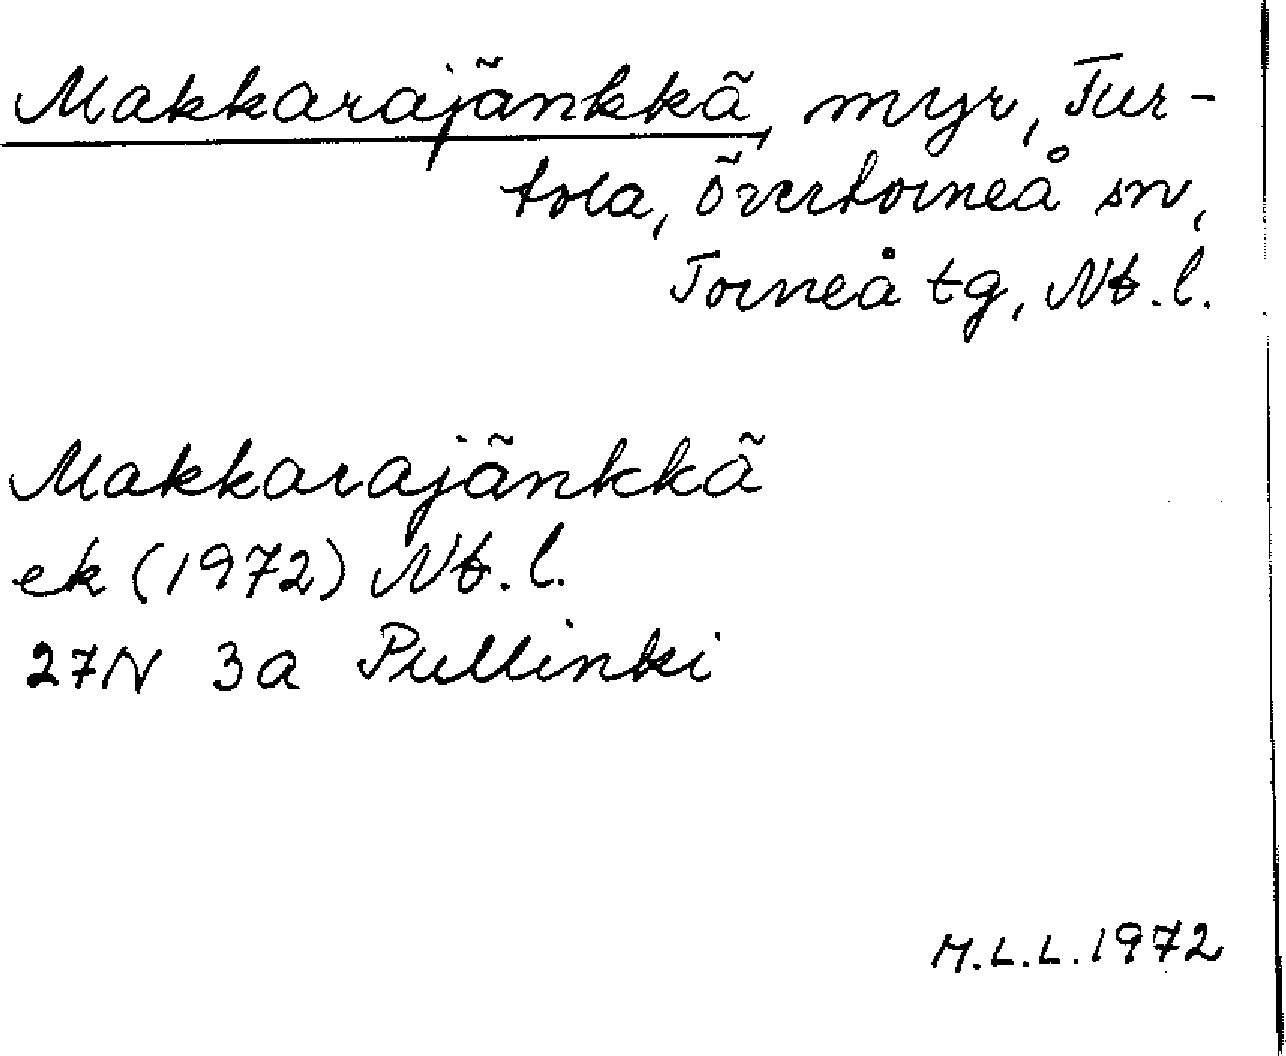 Makkarajänkkä, myr, Tur-
tola, Övertorneå sn,
Torneå tg, Nb.l.
Makkarajänkkä
ek (1972) Nb.l.
27N 3a Pullinki
M.L.L.1972